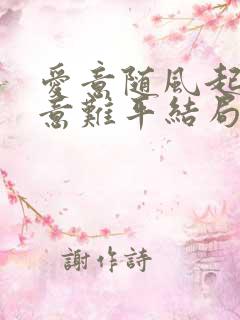 愛意随風起
意難平結局
謝作詩